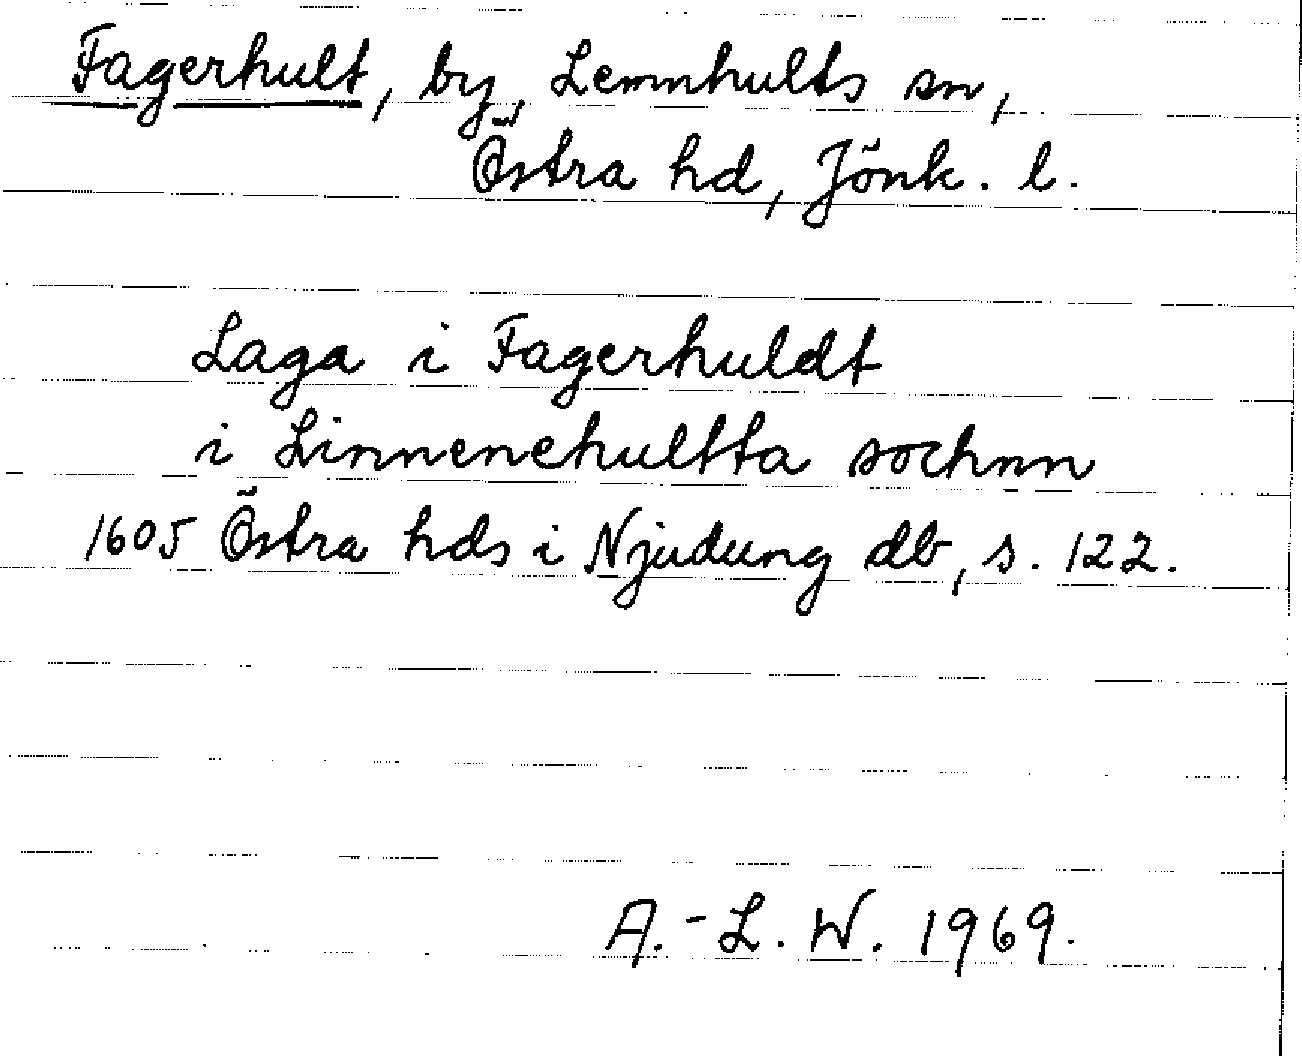 Fagerhult, by, Lemnhults sn,
Östra hd, Jönk. l.
Laga i Fagerhuldt
i Linnenehultta sochnn
1605 Östra hds i Njudung db, s. 122.
A.-L. W. 1969.